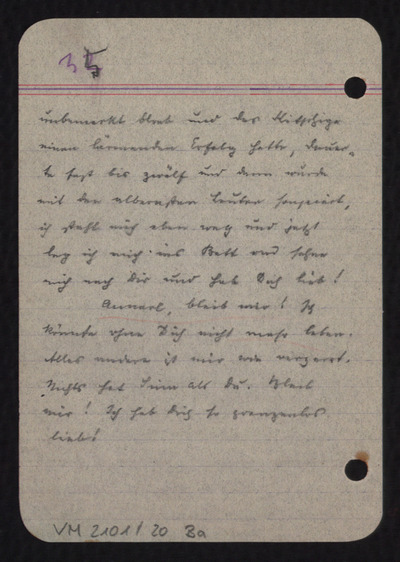 35
unbemerkt blieb und das Kitschige
einen lärmenden Erfolg hatte, dauer-
te fast bis zwölf und dann wurde
mit den albernsten Leuten soupiert,
ich stahl mich eben weg und jetzt
leg ich mich ins Bett und sehne
mich nach Dir und hab Dich lieb!
Annerl, bleib mir! Ich
könnte ohne Dich nicht mehr leben.
Alles andere ist mir wie versperrt.
Nichts hat Sinn als Du. Bleib
mir! Ich hab Dich so grenzenlos
lieb!
VM 2101/20 Ba